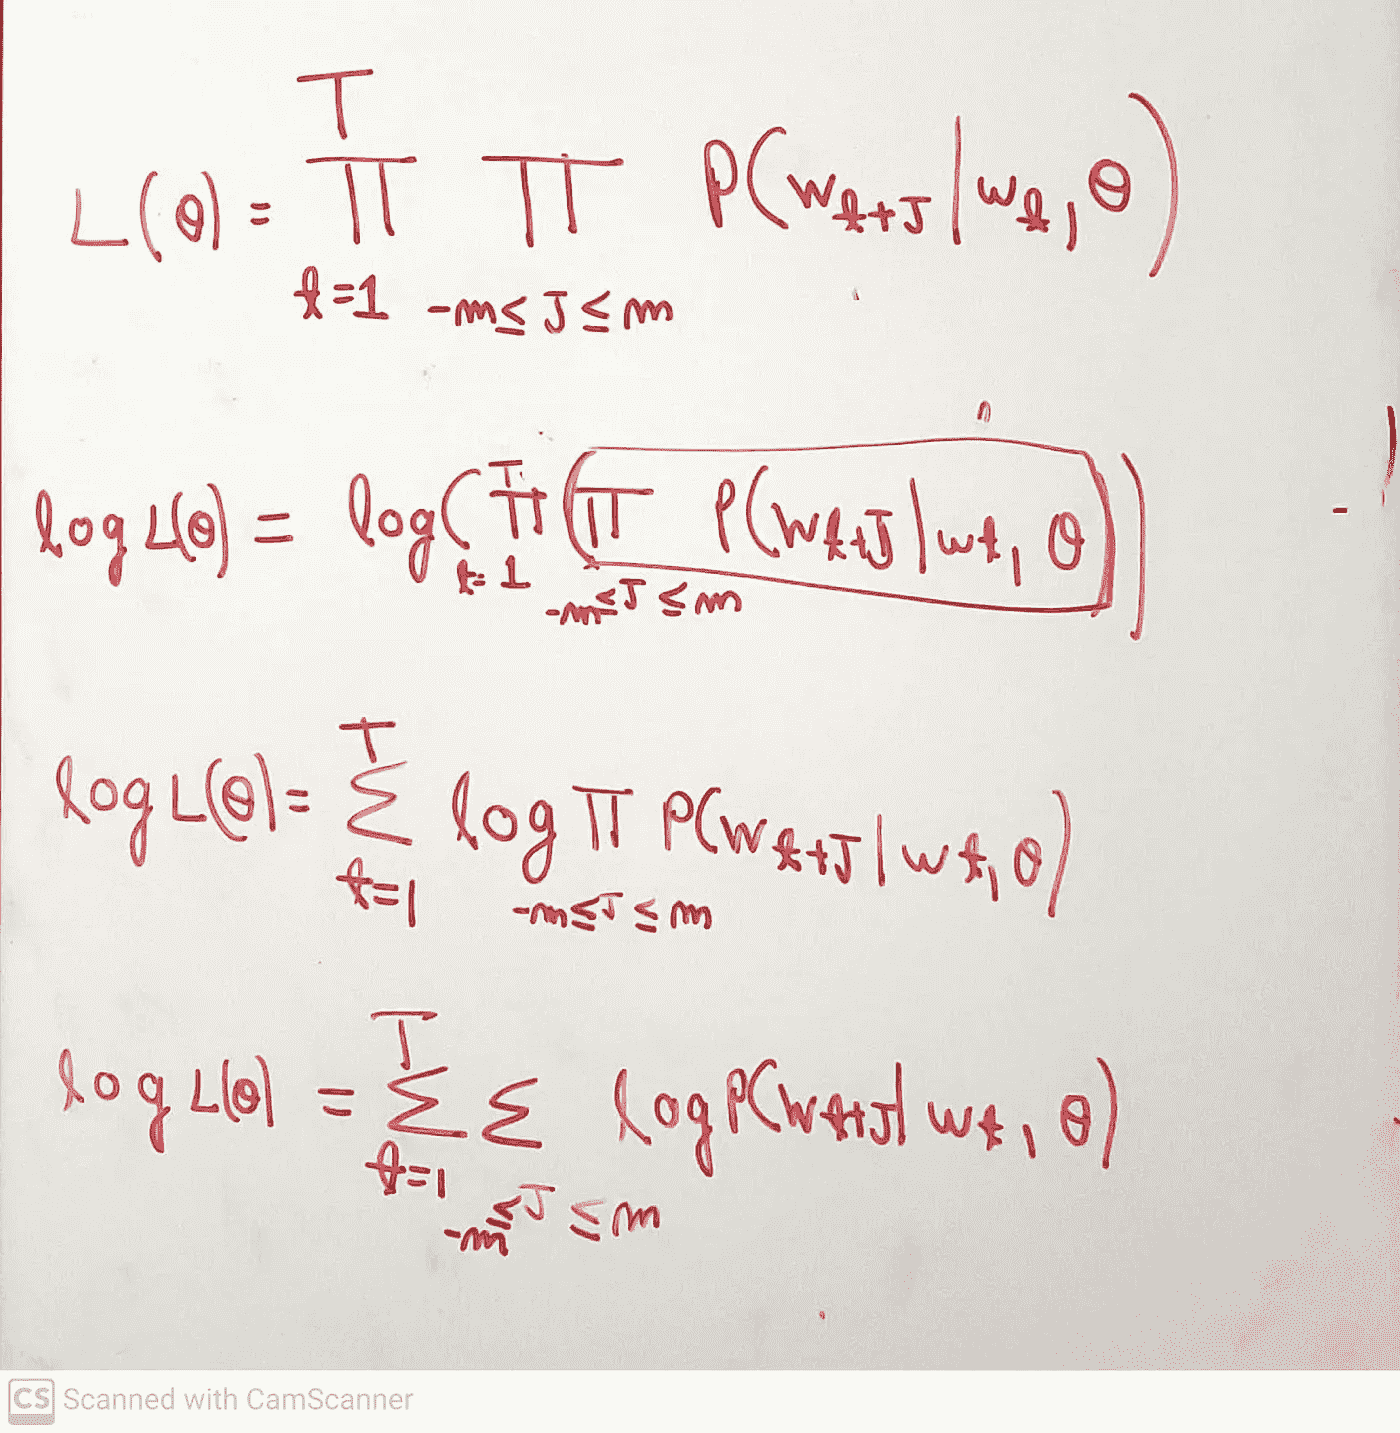 L(θ) = T ∏ t=1 ∏ -m≤J≤m P(w_{t+J} | w_t, θ)
log L(θ) = log( T ∏ t=1 ( ∏ -m≤J≤m P(w_{t+J} | w_t, θ) ) )
log L(θ) = T Σ t=1 log ∏ -m≤J≤m P(w_{t+J} | w_t, θ)
log L(θ) = T Σ t=1 Σ -m≤J≤m log P(w_{t+J} | w_t, θ)
CS Scanned with CamScanner